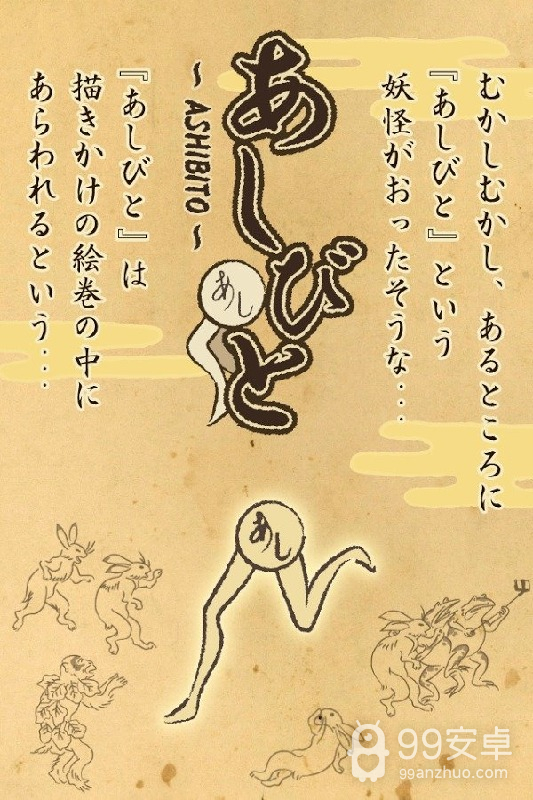 むかしむかし、あるところに
『あしびと』という
妖怪がおったそうな...
あしびと
~ ASHIBITO ~
あし
『あしびと』は
描きかけの絵巻の中に
あらわれるという...
あし
99安卓
99anzhuo.com